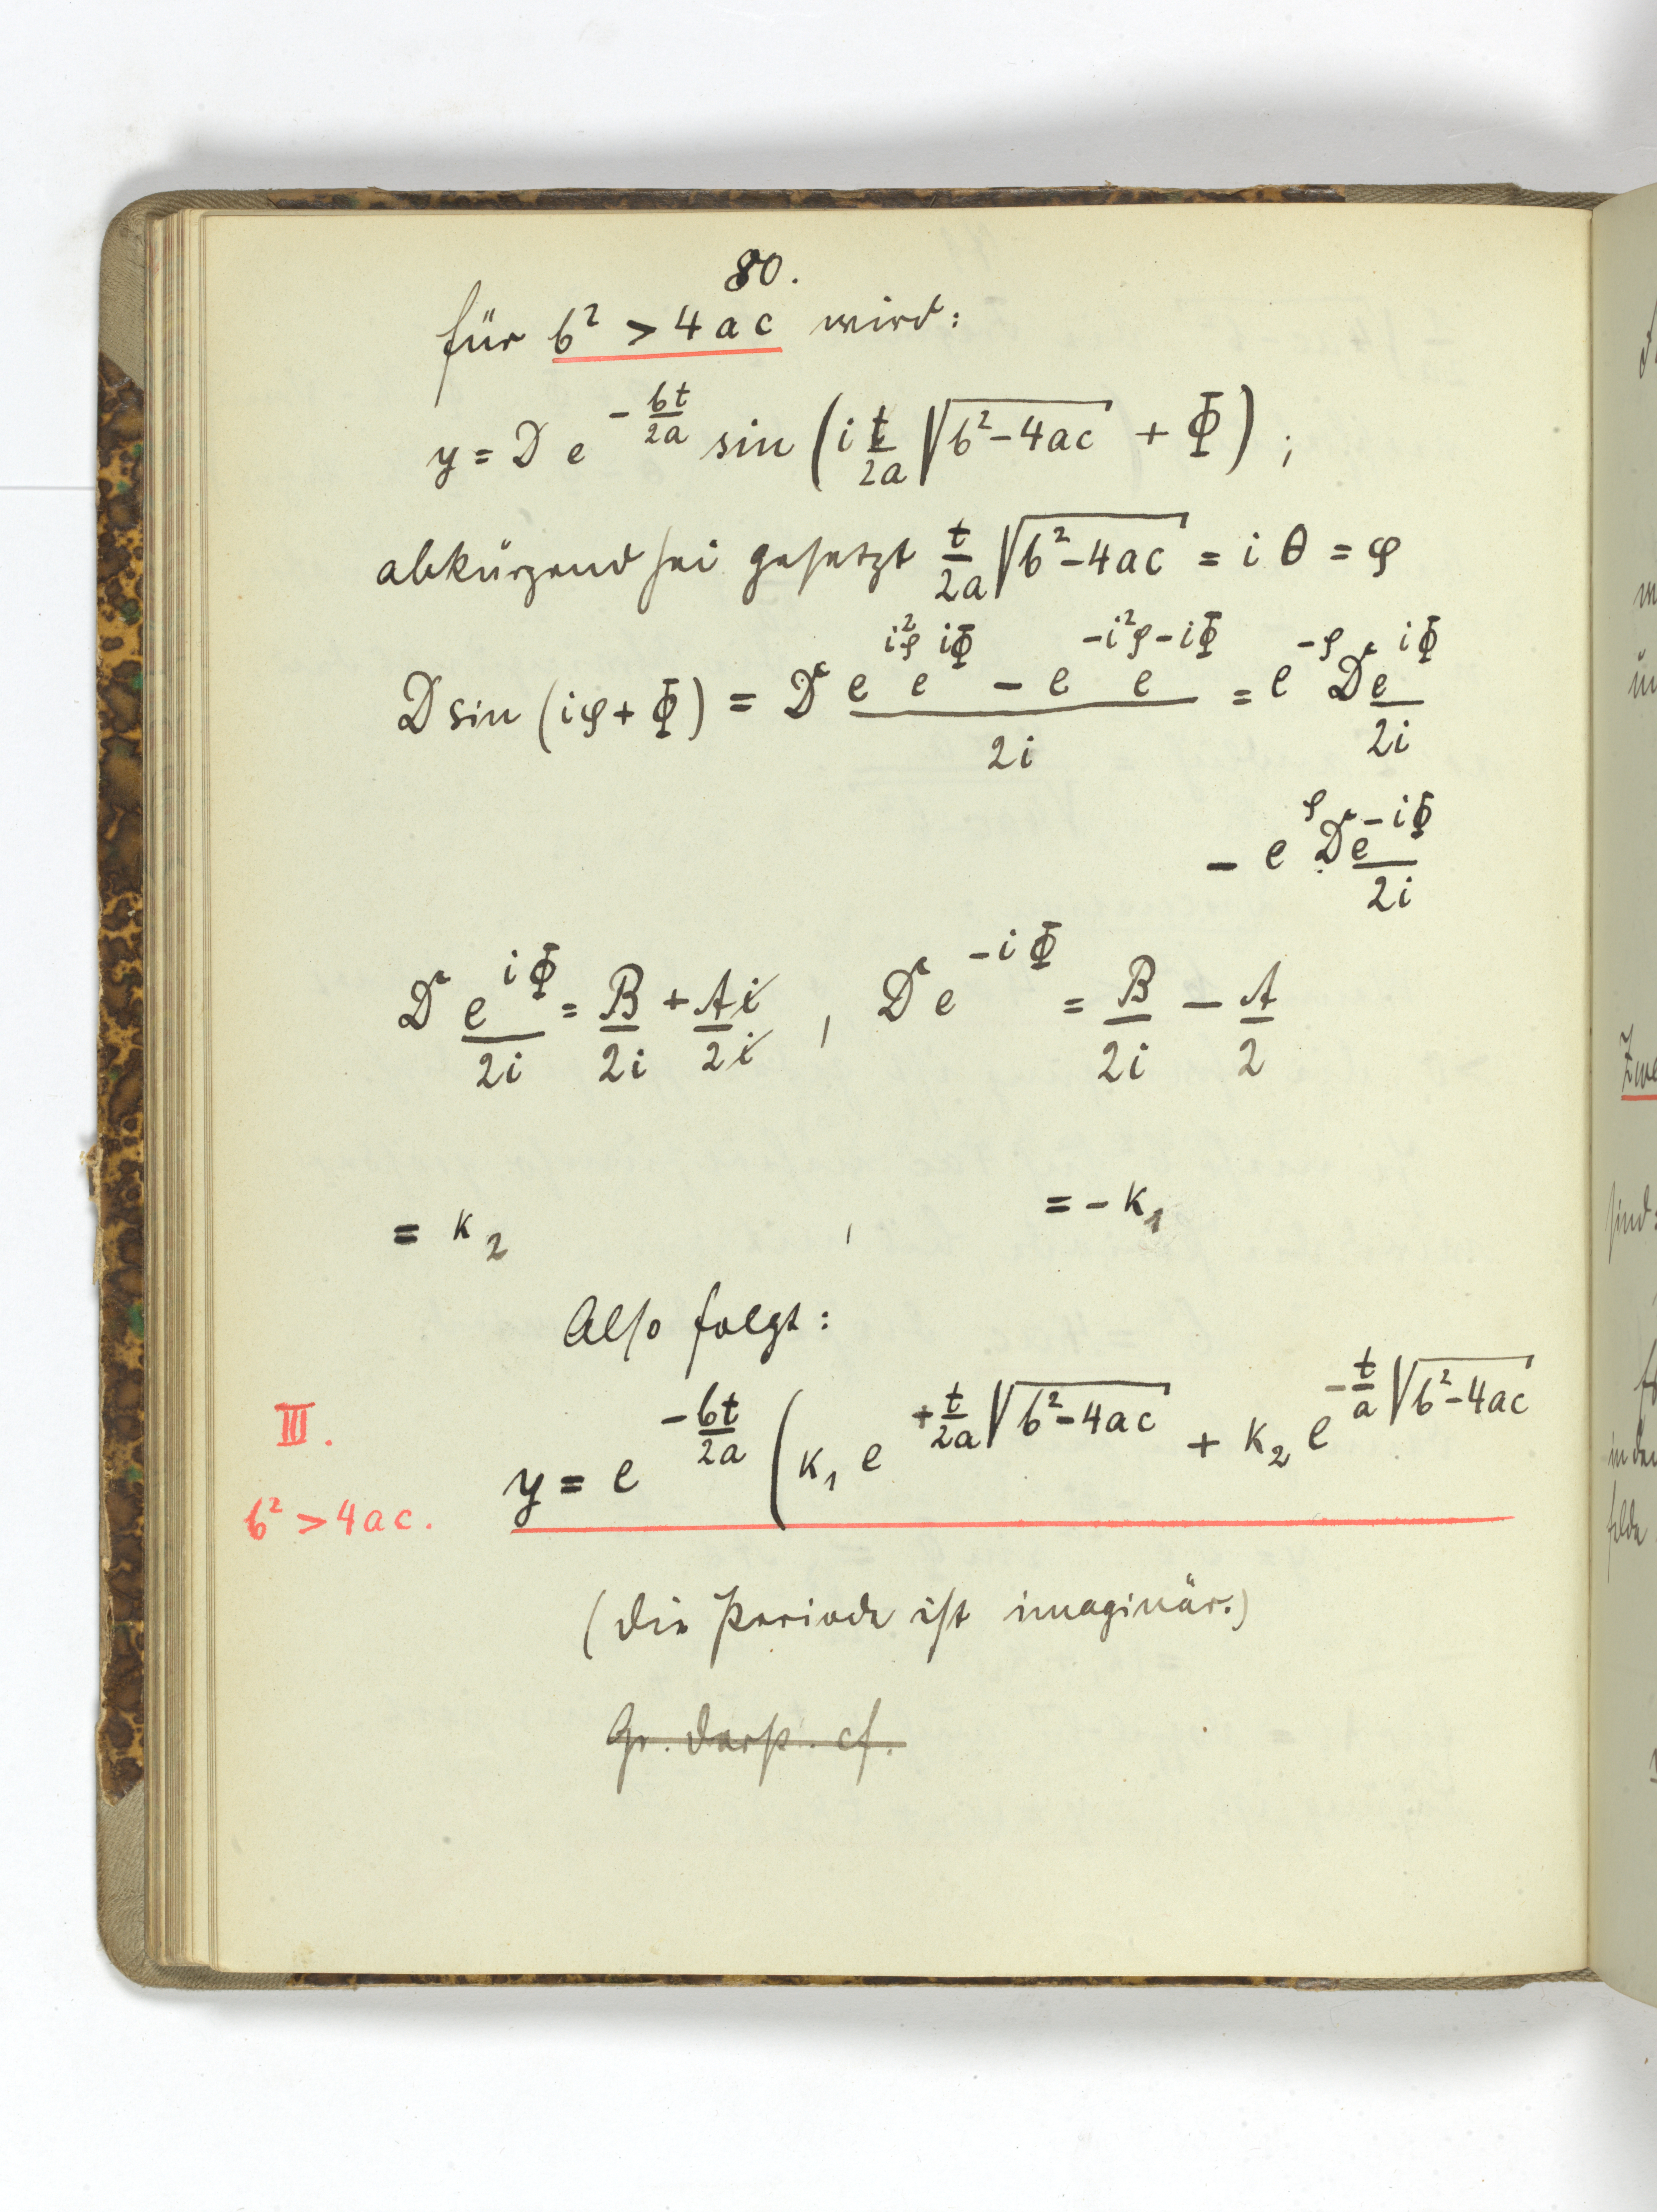 80.
für b² > 4ac wird:
y = D e^{-\frac{bt}{2a}} sin (i \frac{t}{2a} \sqrt{b²-4ac} + Φ) ;
abkürzend sei gesetzt \frac{t}{2a} \sqrt{b²-4ac} = i θ = φ
D sin (iφ + Φ) = D \frac{e^{i²φ} e^{iΦ} - e^{-i²φ} e^{-iΦ}}{2i} = e^{-φ} D \frac{e^{iΦ}}{2i}
- e^{φ} D \frac{e^{-iΦ}}{2i}
D \frac{e^{iΦ}}{2i} = \frac{B}{2i} + \frac{Ai}{2i} , D e^{-iΦ} = \frac{B}{2i} - \frac{A}{2}
= K₂ , = - K₁
Also folgt:
III. y = e^{-\frac{bt}{2a}} (K₁ e^{+\frac{t}{2a} \sqrt{b²-4ac}} + K₂ e^{-\frac{t}{a} \sqrt{b²-4ac}}
b² > 4ac.
(die Periode ist imaginär.)
Gr. Darst. cf.